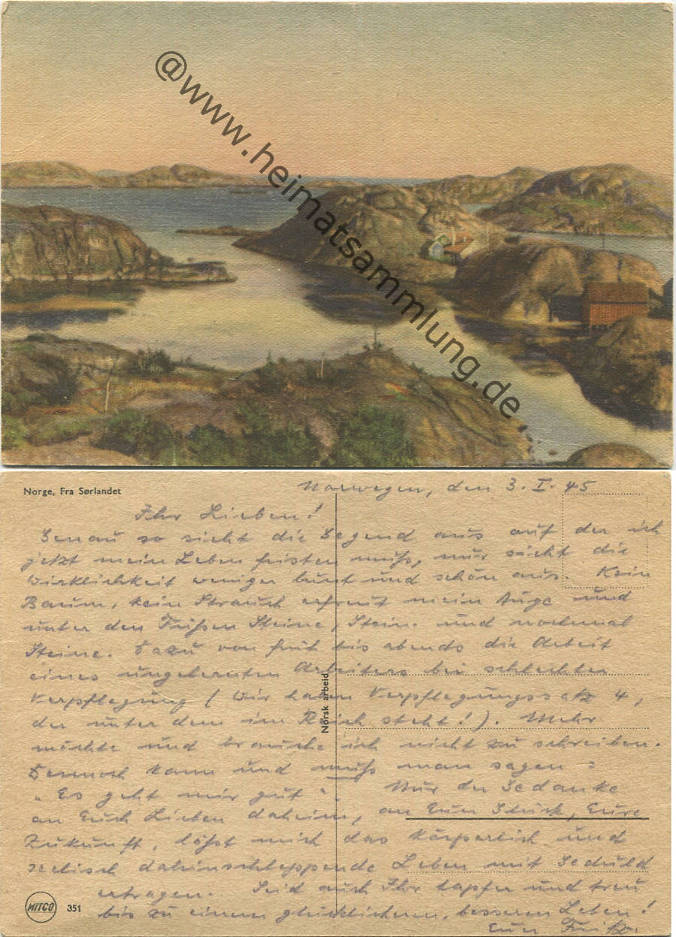 @www.heimatsammlung.de
Norge, Fra Sørlandet
Norwegen, den 3. I. 45
Ihr Lieben!
Genau so sieht die Gegend aus auf der ich
jetzt mein Leben fristen muß, nur sieht die
Wirklichkeit weniger bunt und schön aus. Kein
Baum, kein Strauch erfreut mein Auge und
unter den Füßen Steine, Steine und nochmal
Steine. Dazu von früh bis abends die Arbeit
eines ungelernten Arbeiters bei schlechter
Verpflegung (Wir haben Verpflegungssatz 4,
der unter dem im Reich steht!). Mehr
möchte und brauche ich nicht zu schreiben.
Dennoch kann und muß man sagen:
"Es geht mir gut". Nur der Gedanke
an Euch Lieben daheim, an Euer Glück, Eure
Zukunft, läßt mich das körperlich und
seelisch dahinschleppende Leben mit Geduld
ertragen. Seid auch Ihr tapfer und treu
bis zu einem glücklicheren, besseren Leben!
Euer Fritz.
Norsk arbeid
MITCO 351